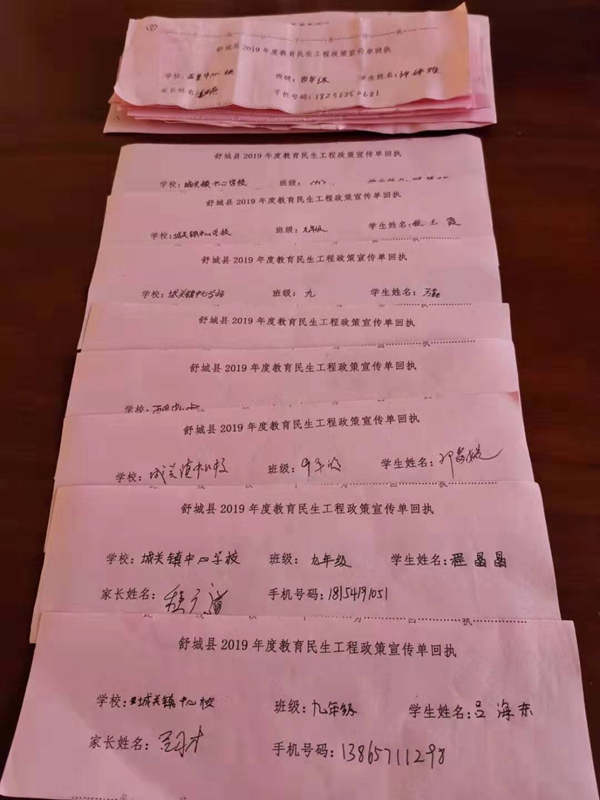 舒城县2019年度教育民生工程政策宣传单回执
学校: 中心校 班级: 四年级 学生姓名:
家长姓名: 手机号码:
舒城县 2019 年度教育民生工程政策宣传单回执
学校: 城关镇中心学校 班级:
舒城县 2019 年度教育民生工程政策宣传单回执
学校: 城关镇中心学校 班级: 九年级 学生姓名:
舒城县 2019 年度教育民生工程政策宣传单回执
学校: 城关镇中心学校 班级: 九 学生姓名:
舒城县 2019 年度教育民生工程政策宣传单回执
舒城县 2019 年度教育民生工程政策宣传单回执
舒城县 2019 年度教育民生工程政策宣传单回执
学校: 城关镇中心校 班级: 九年级 学生姓名:
舒城县 2019 年度教育民生工程政策宣传单回执
学校: 城关镇中心学校 班级: 九年级 学生姓名: 程晶晶
家长姓名: 手机号码: 18154191051
舒城县 2019 年度教育民生工程政策宣传单回执
学校: 城关镇中心校 班级: 九年级 学生姓名: 吕海东
家长姓名: 手机号码: 13865711298